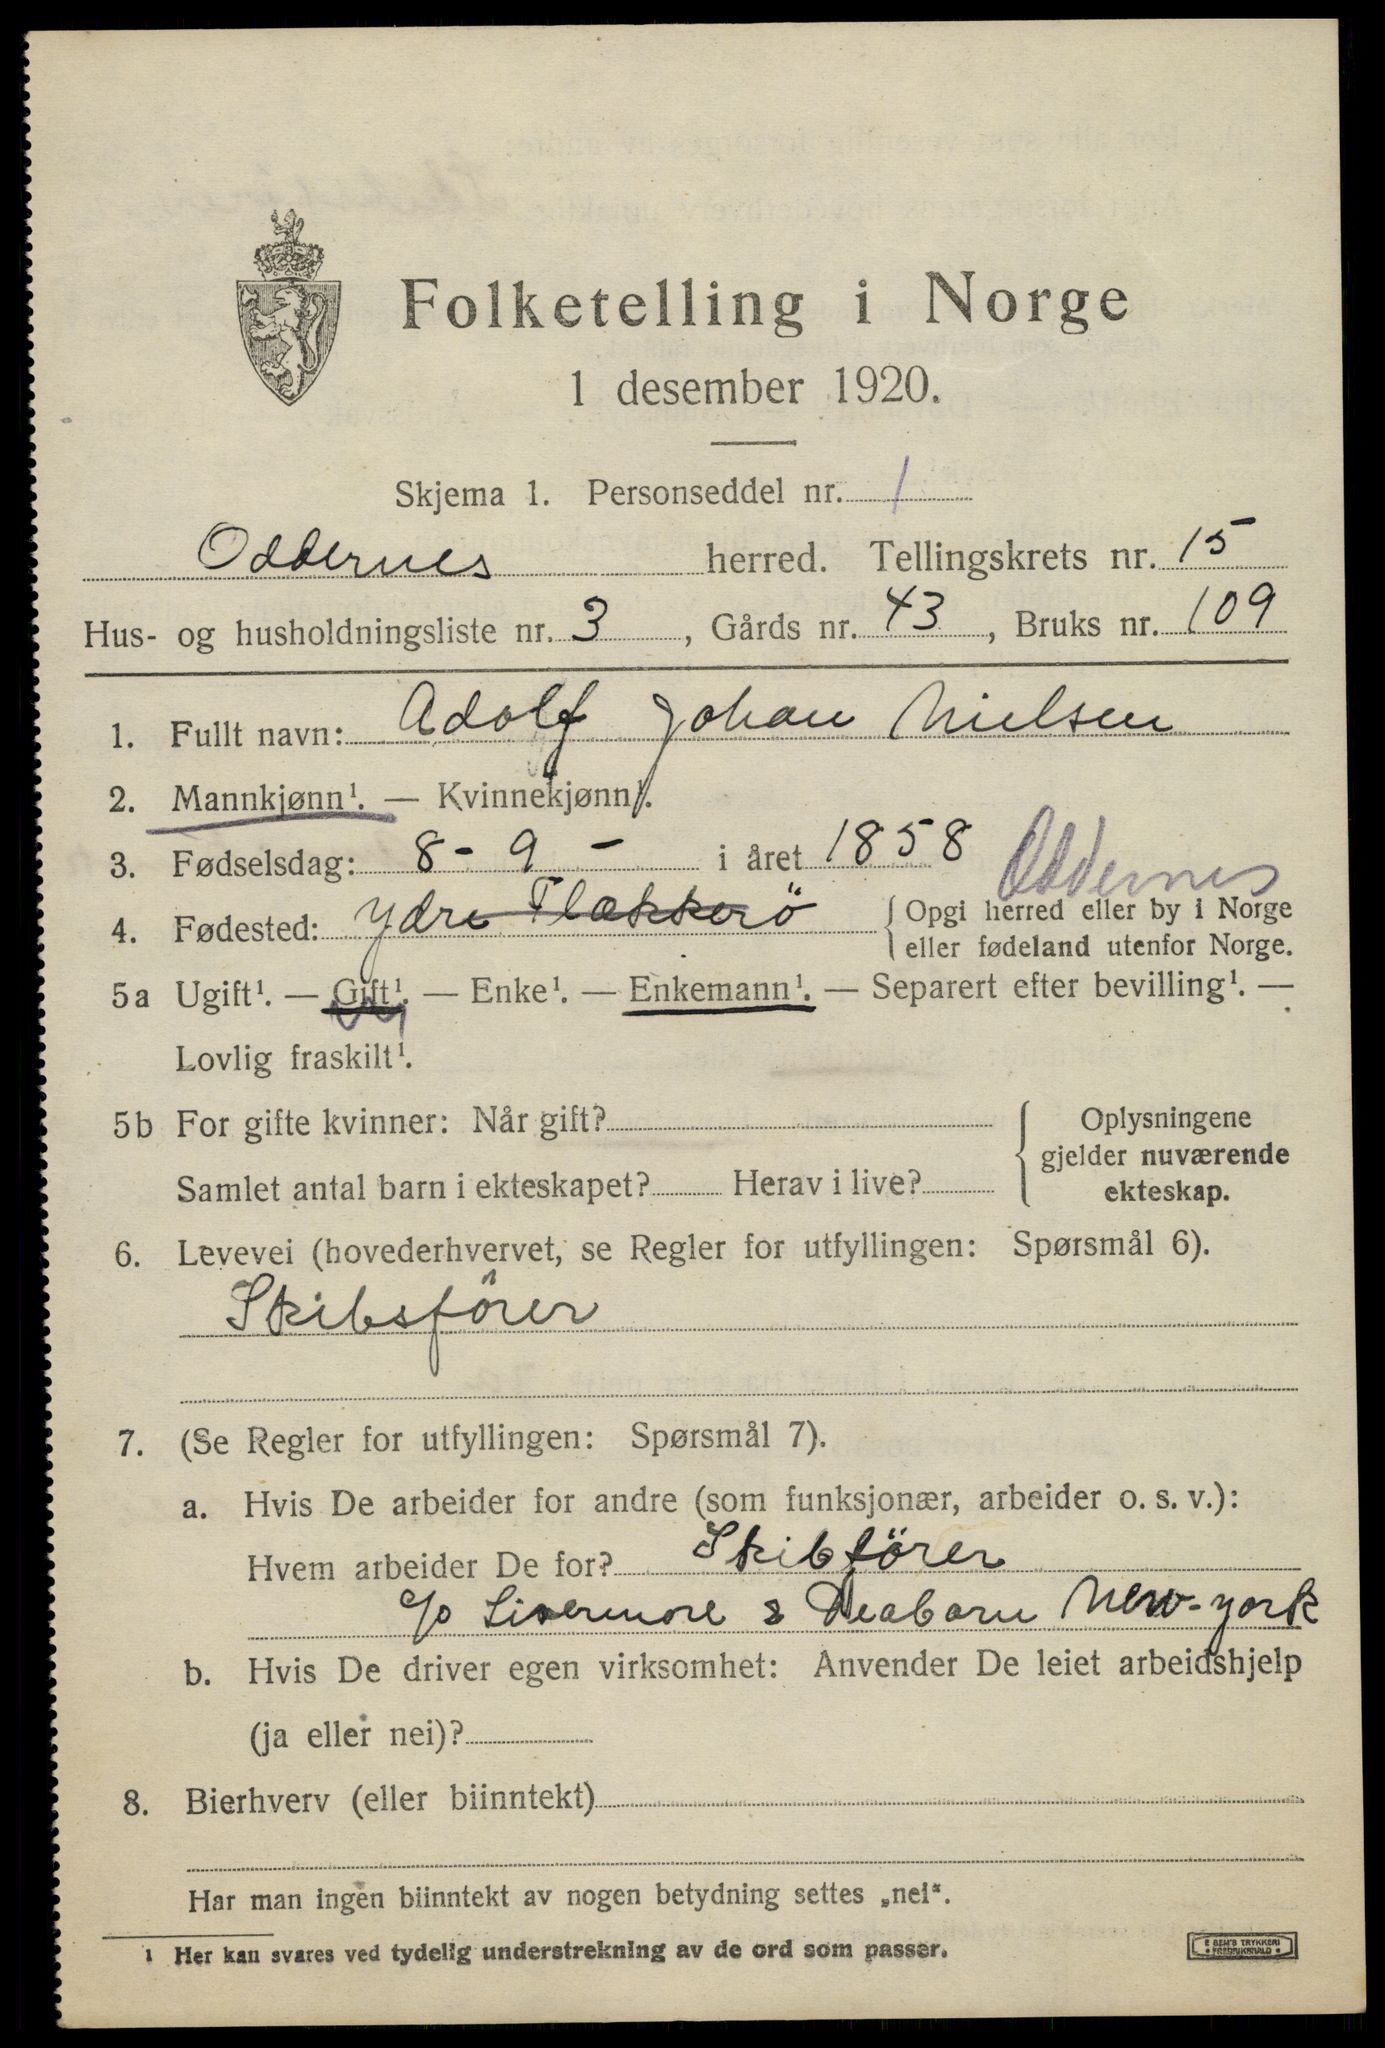 Folketelling i Norge
1 desember 1920.
Skjema 1. Personseddel nr. 1
Oddernes herred. Tellingskrets nr. 15
Hus- og husholdningsliste nr. 3, Gårds nr. 43, Bruks nr. 109
1. Fullt navn: Adolf Johan Nielsen
2. Mannkjønn¹. — Kvinnekjønn¹.
3. Fødselsdag: 8-9- i året 1858
Oddernes
4. Fødested: Ydre Flekkerö {Opgi herred eller by i Norge
eller fødeland utenfor Norge.
5a Ugift¹. — Gift¹. — Enke¹. — Enkemann¹. — Separert efter bevilling¹. —
Lovlig fraskilt¹.
5b For gifte kvinner: Når gift? {Oplysningene
gjelder nuværende
Samlet antal barn i ekteskapet? Herav i live? ekteskap.
6. Levevei (hovederhvervet, se Regler for utfyllingen: Spørsmål 6).
Skibsförer
7. (Se Regler for utfyllingen: Spørsmål 7).
a. Hvis De arbeider for andre (som funksjonær, arbeider o. s. v.):
Hvem arbeider De for? Skibförer
c/o Livermore & Deaborn New-york
b. Hvis De driver egen virksomhet: Anvender De leiet arbeidshjelp
(ja eller nei)?
8. Bierhverv (eller biinntekt)
Har man ingen biinntekt av nogen betydning settes „nei“.
¹ Her kan svares ved tydelig understrekning av de ord som passer.
E SEM'S TRYKKERI
FREDRIKSHALD